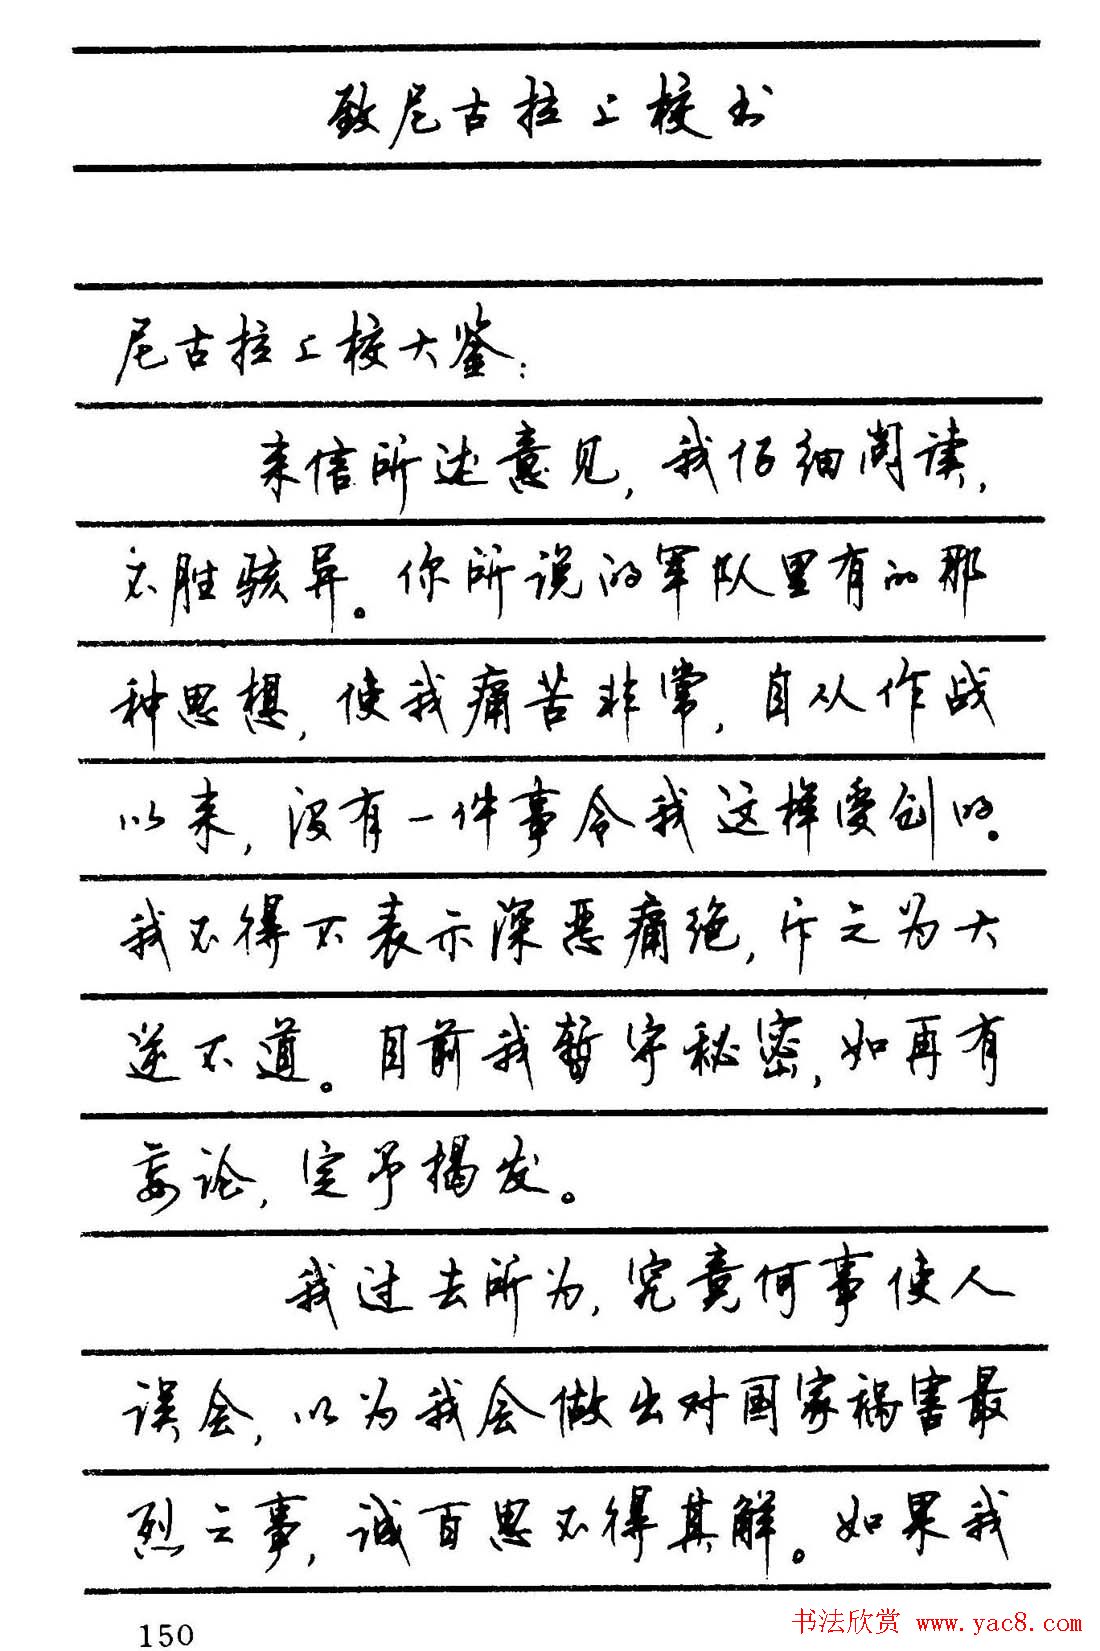 致尼古拉上校书
尼古拉上校大鉴：
来信所述意见，我仔细阅读，
不胜骇异。你所说的军队里有的那
种思想，使我痛苦非常，自从作战
以来，没有一件事令我这样受创的。
我不得不表示深恶痛绝，斥之为大
逆不道。目前我暂守秘密，如再有
妄论，定予揭发。
我过去所为，究竟何事使人
误会，以为我会做出对国家祸害最
烈之事，诚百思不得其解。如果我
150
书法欣赏 www.yac8.com